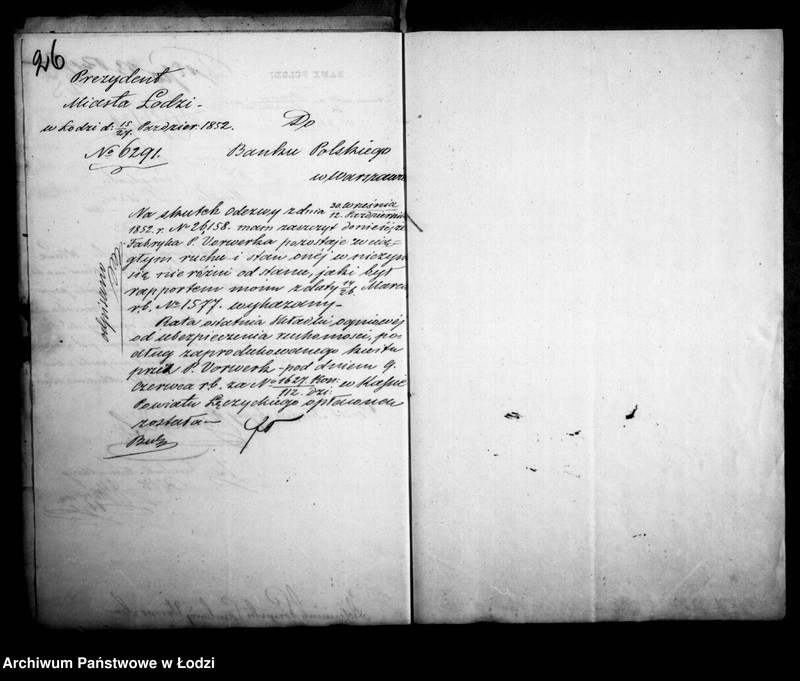 26
Prezydent
Miasta Łodzi -
w Łodzi d. 15/27 Paździer. 1852.
No 6291.
Do
Banku Polskiego
w Warszawie
Na skutek odezwy z dnia 30 Września/12 Października
1852 r. No 26,158. mam zaszczyt donieść, że
Fabryka P. Vorwerka pozostaje w cią-
głym ruchu i stan onej w niczym
się nie różni od stanu, jaki był
rapportem moim z daty 14/26 Marca
r.b. No 1577. wykazany -
Rata ostatnia składki ogniowej
od ubezpieczenia ruchomości, po-
dług zaprodukowanego kwitu
przez P. Vorwerk - pod dniem 9
Czerwca r.b. za No 1627. Kon:/112. Dzi: w Kassie
Powiatu Łęczyckiego opłaconą
została -
odpisano
BANK POLSKI
Archiwum Państwowe w Łodzi